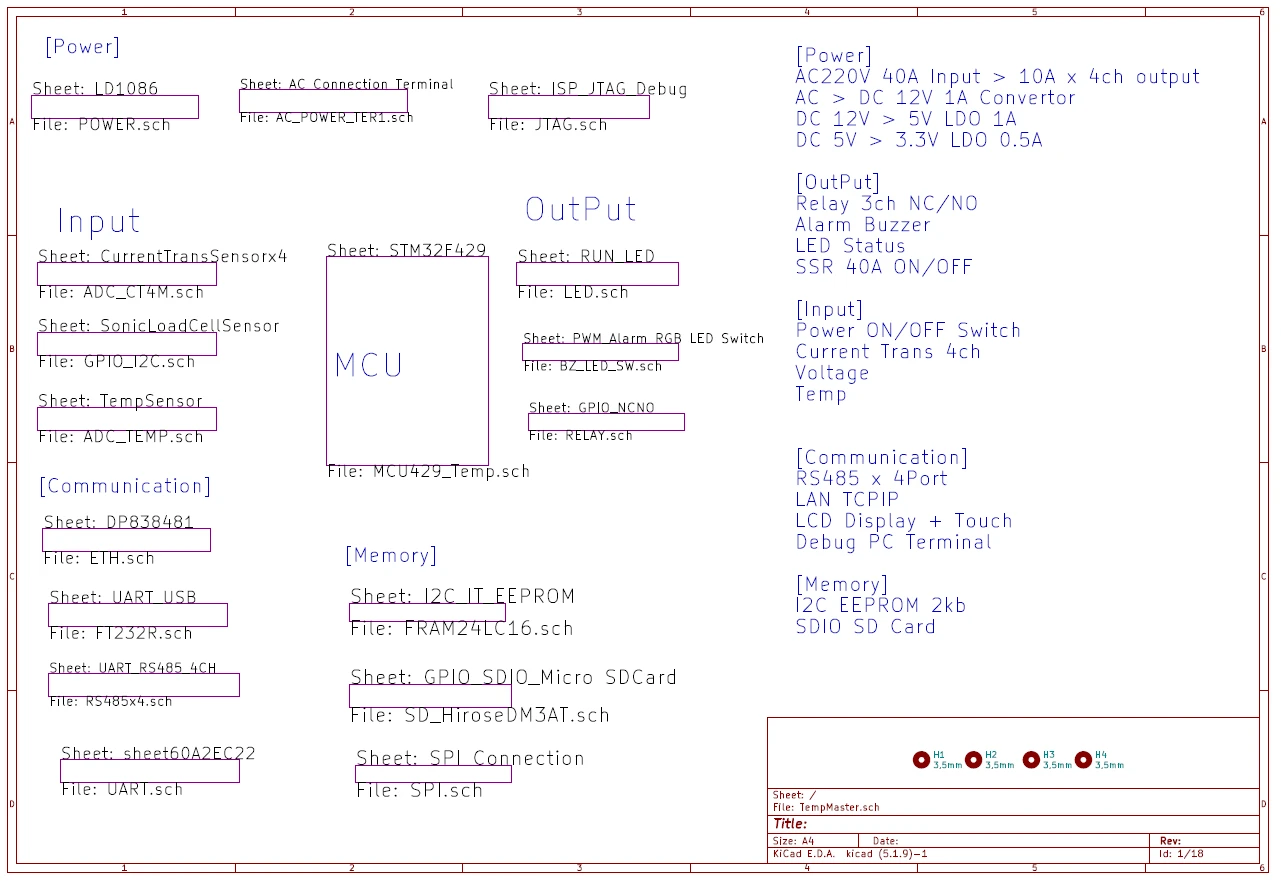 [Power]
Sheet: LD1086
File: POWER.sch
Sheet: AC Connection Terminal
File: AC_POWER_TER1.sch
Sheet: ISP_JTAG_Debug
File: JTAG.sch
Input
Sheet: CurrentTransSensorx4
File: ADC_CT4M.sch
Sheet: SonicLoadCellSensor
File: GPIO_I2C.sch
Sheet: TempSensor
File: ADC_TEMP.sch
Sheet: STM32F429
MCU
File: MCU429_Temp.sch
OutPut
Sheet: RUN_LED
File: LED.sch
Sheet: PWM_Alarm_RGB LED Switch
File: BZ_LED_SW.sch
Sheet: GPIO_NCNO
File: RELAY.sch
[Communication]
Sheet: DP838481
File: ETH.sch
Sheet: UART_USB
File: FT232R.sch
Sheet: UART_RS485_4CH
File: RS485x4.sch
Sheet: sheet60A2EC22
File: UART.sch
[Memory]
Sheet: I2C_IT_EEPROM
File: FRAM24LC16.sch
Sheet: GPIO_SDIO_Micro SDCard
File: SD_HiroseDM3AT.sch
Sheet: SPI_Connection
File: SPI.sch
[Power]
AC220V 40A Input > 10A x 4ch output
AC > DC 12V 1A Convertor
DC 12V > 5V LDO 1A
DC 5V > 3.3V LDO 0.5A
[OutPut]
Relay 3ch NC/NO
Alarm Buzzer
LED Status
SSR 40A ON/OFF
[Input]
Power ON/OFF Switch
Current Trans 4ch
Voltage
Temp
[Communication]
RS485 x 4Port
LAN TCPIP
LCD Display + Touch
Debug PC Terminal
[Memory]
I2C EEPROM 2kb
SDIO SD Card
H1
3,5mm
H2
3,5mm
H3
3,5mm
H4
3,5mm
Sheet: /
File: TempMaster.sch
Title:
Size: A4
Date:
Rev:
KiCad E.D.A. kicad (5.1.9)-1
Id: 1/18
1
2
3
4
5
6
A
B
C
D
1
2
3
4
5
6
A
B
C
D